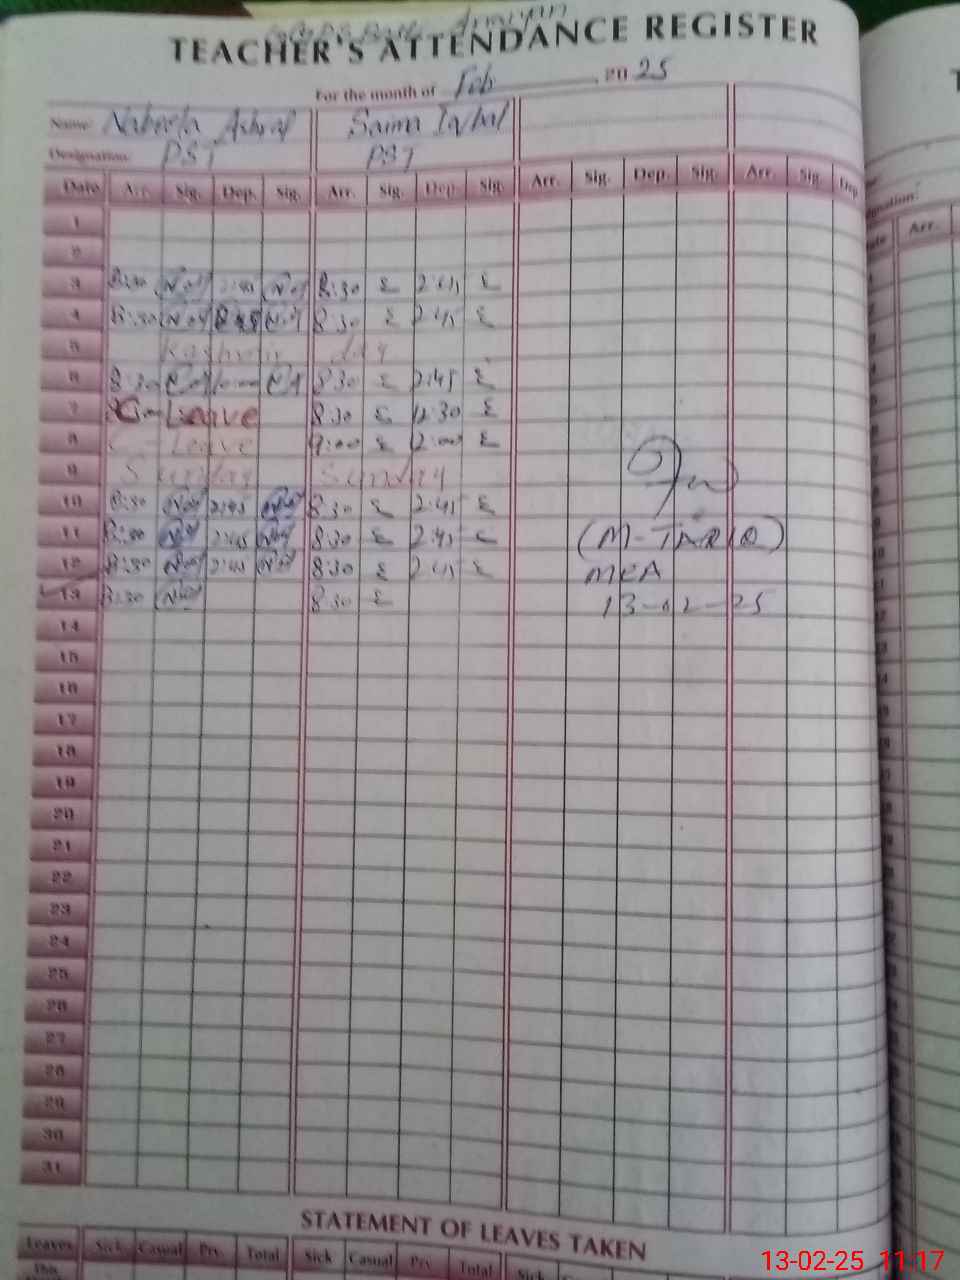 TEACHER'S ATTENDANCE REGISTER
For the month of Feb 20 25
Name Nabeela Ashraf Saima Iqbal
Designation PST PST
Date Arr. Sig. Dep. Sig. Arr. Sig. Dep. Sig. Arr. Sig. Dep. Sig. Arr. Sig. Dep
1
2
3 8:30 2:45 8:30 2:45
4 8:30 8:30 2:45
5 Kashmir day
6 8:30 10:00 8:30 2:45
7 Leave 8:30 12:30
8 C- Leave 9:00 12:00
9 Sunday Sunday
10 8:30 2:45 8:30 2:45
11 8:30 2:45 8:30 2:45 (M-TARIQ)
12 8:30 2:45 8:30 2:45 MEA
13 8:30 8:30 13-02-25
14
15
16
17
18
19
20
21
22
23
24
25
26
27
28
29
30
31
STATEMENT OF LEAVES TAKEN
Leaves Sick Casual Prv. Total Sick Casual Prv. Total Sick
This
Arr.
13-02-25 11:17